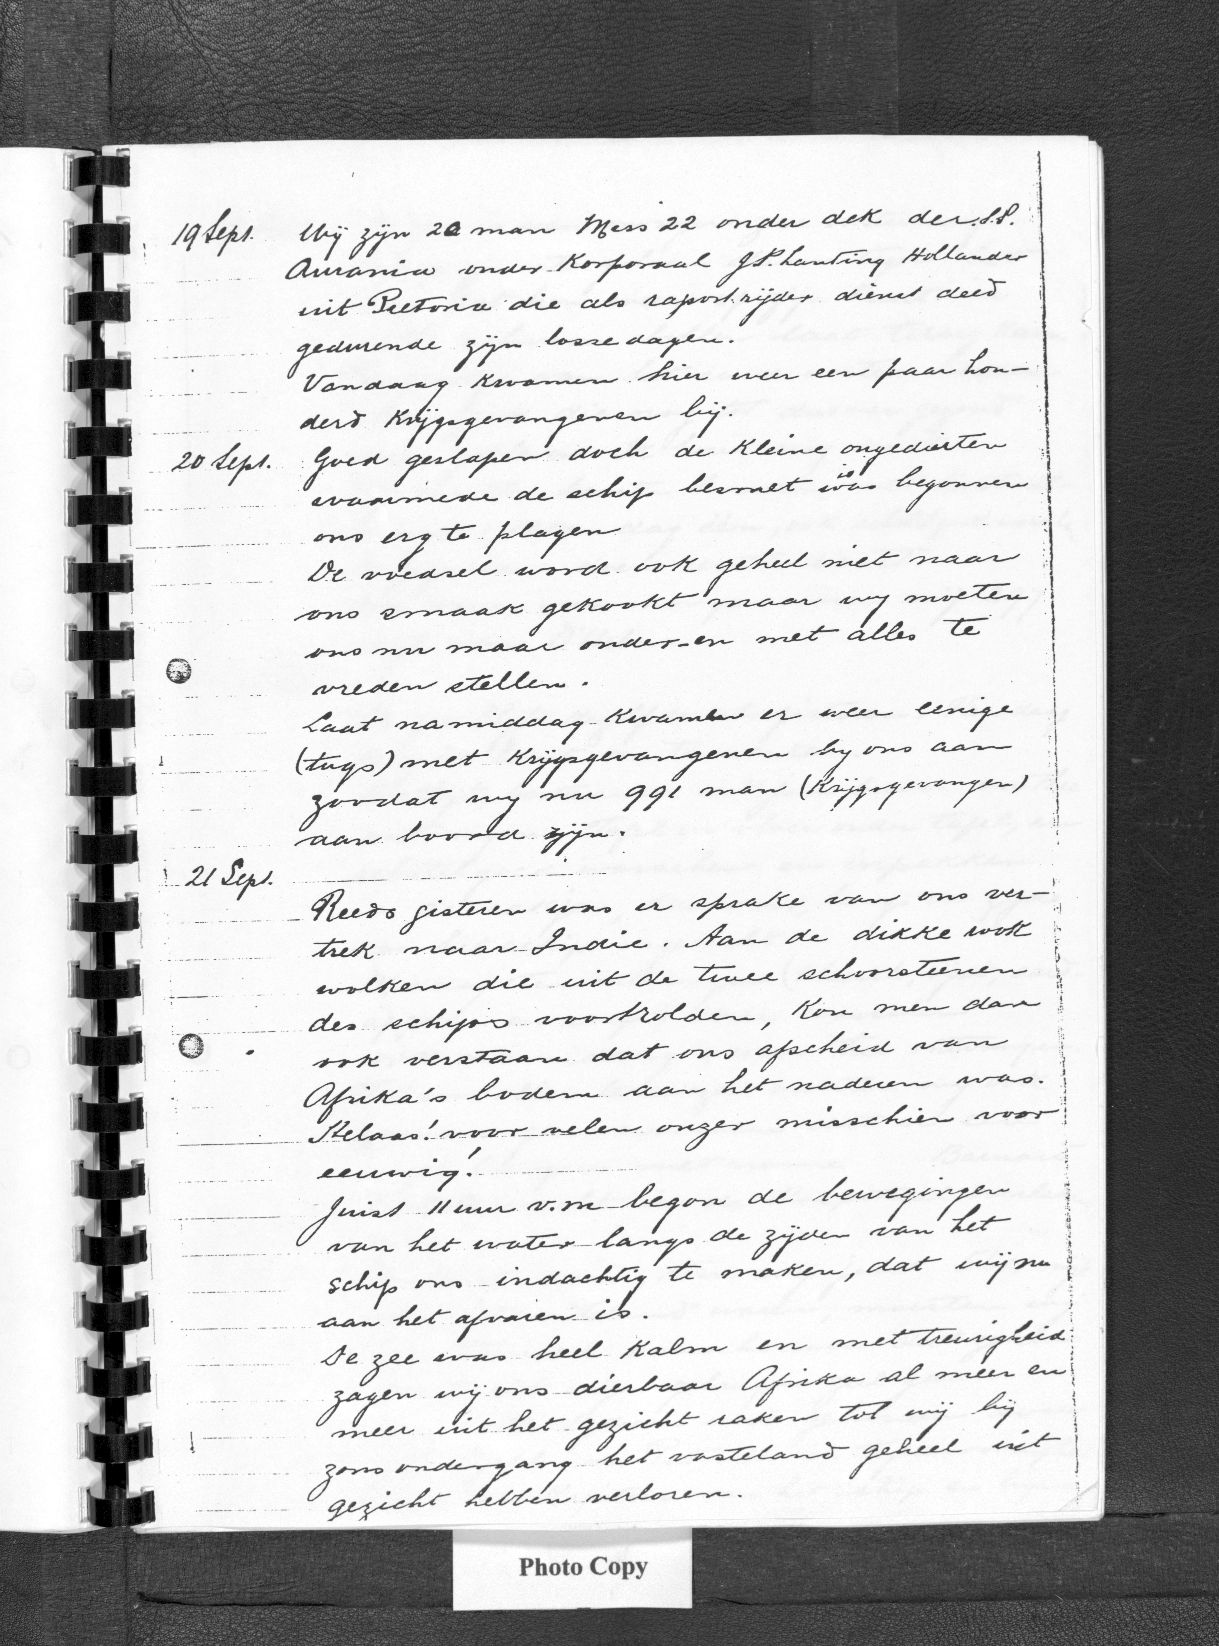 19 Sept. Wij zijn 20 man Mess 22 onder dek der S.S.
Aurania onder Korporaal J.P. Lanting Hollander
uit Pretoria die als raport.rijder dienst deed
gedurende zijn losse dagen.
Vandaag kwamen hier weer een paar hon-
derd Krijgsgevangenen bij.
20 Sept. Goed geslapen doch de Kleine ongedierten
waarmede de schip besmet is was begonnen
ons erg te plagen
De voedsel word ook geheel niet naar
ons smaak gekookt maar wij moeten
ons nu maar onder-en met alles te
vreden stellen.
Laat namiddag kwamen er weer eenige
(tugs) met Krijgsgevangenen by ons aan
zoodat wy nu 991 man (Krijgsgevangen)
aan boord zijn.
21 Sept.
Reeds gisteren was er sprake van ons ver-
trek naar Indie. Aan de dikke rook
wolken die uit de twee schoorsteenen
des schips voortrolden, Kon men dan
ook verstaan dat ons afscheid van
Afrika's bodem aan het naderen was.
Helaas! voor velen onzer misschien voor
eeuwig!
Juist 11 uur v.m begon de bewegingen
van het water langs de zijden van het
schip ons indachtig te maken, dat wij nu
aan het afvaren is.
De zee was heel Kalm en met treurigheid
zagen wij ons dierbaar Afrika al meer en
meer uit het gezicht raken tot wij bij
zons ondergang het vasteland geheel uit
gezicht hebben verloren.
Photo Copy